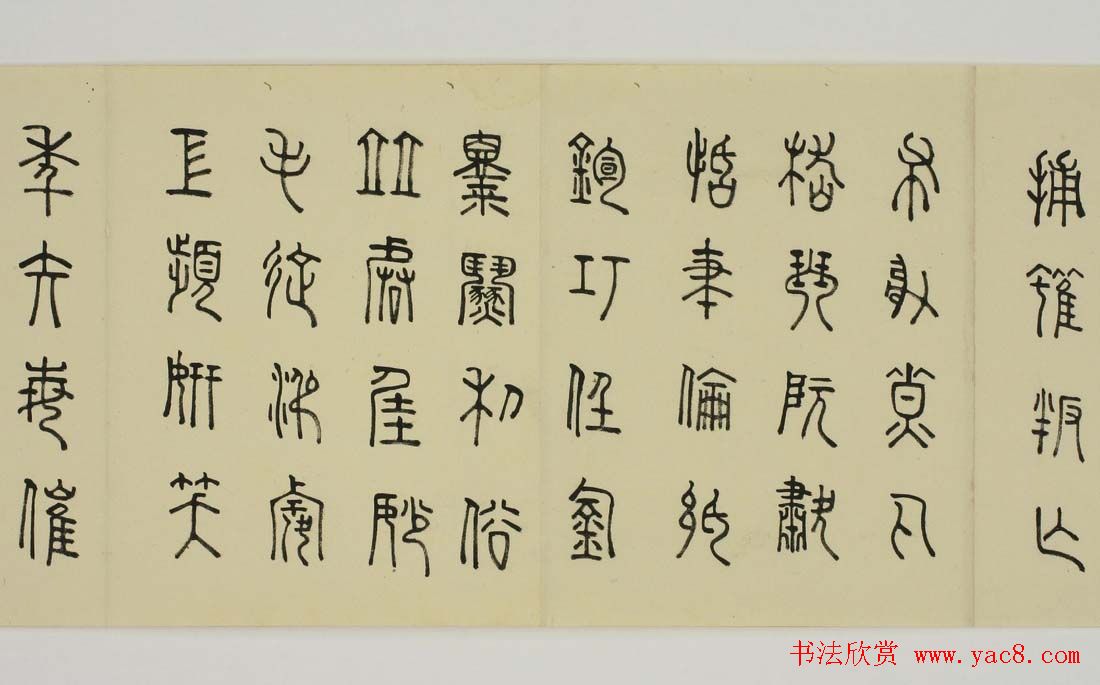 捕獲叛亡
布射遼丸
嵇琴阮嘯
恬筆倫紙
鈞巧任釣
釋紛利俗
竝皆佳妙
毛施淑姿
工顰妍笑
年矢每催
书法欣赏 www.yac8.com